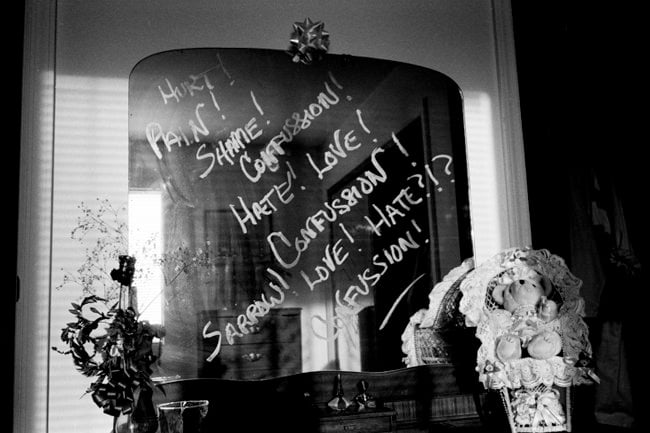 HURT!
PAIN! SHAME! CONFUSSION!
HATE! LOVE!
CONFUSSION!
SARROW! LOVE! HATE?!?
CONFUSSION!